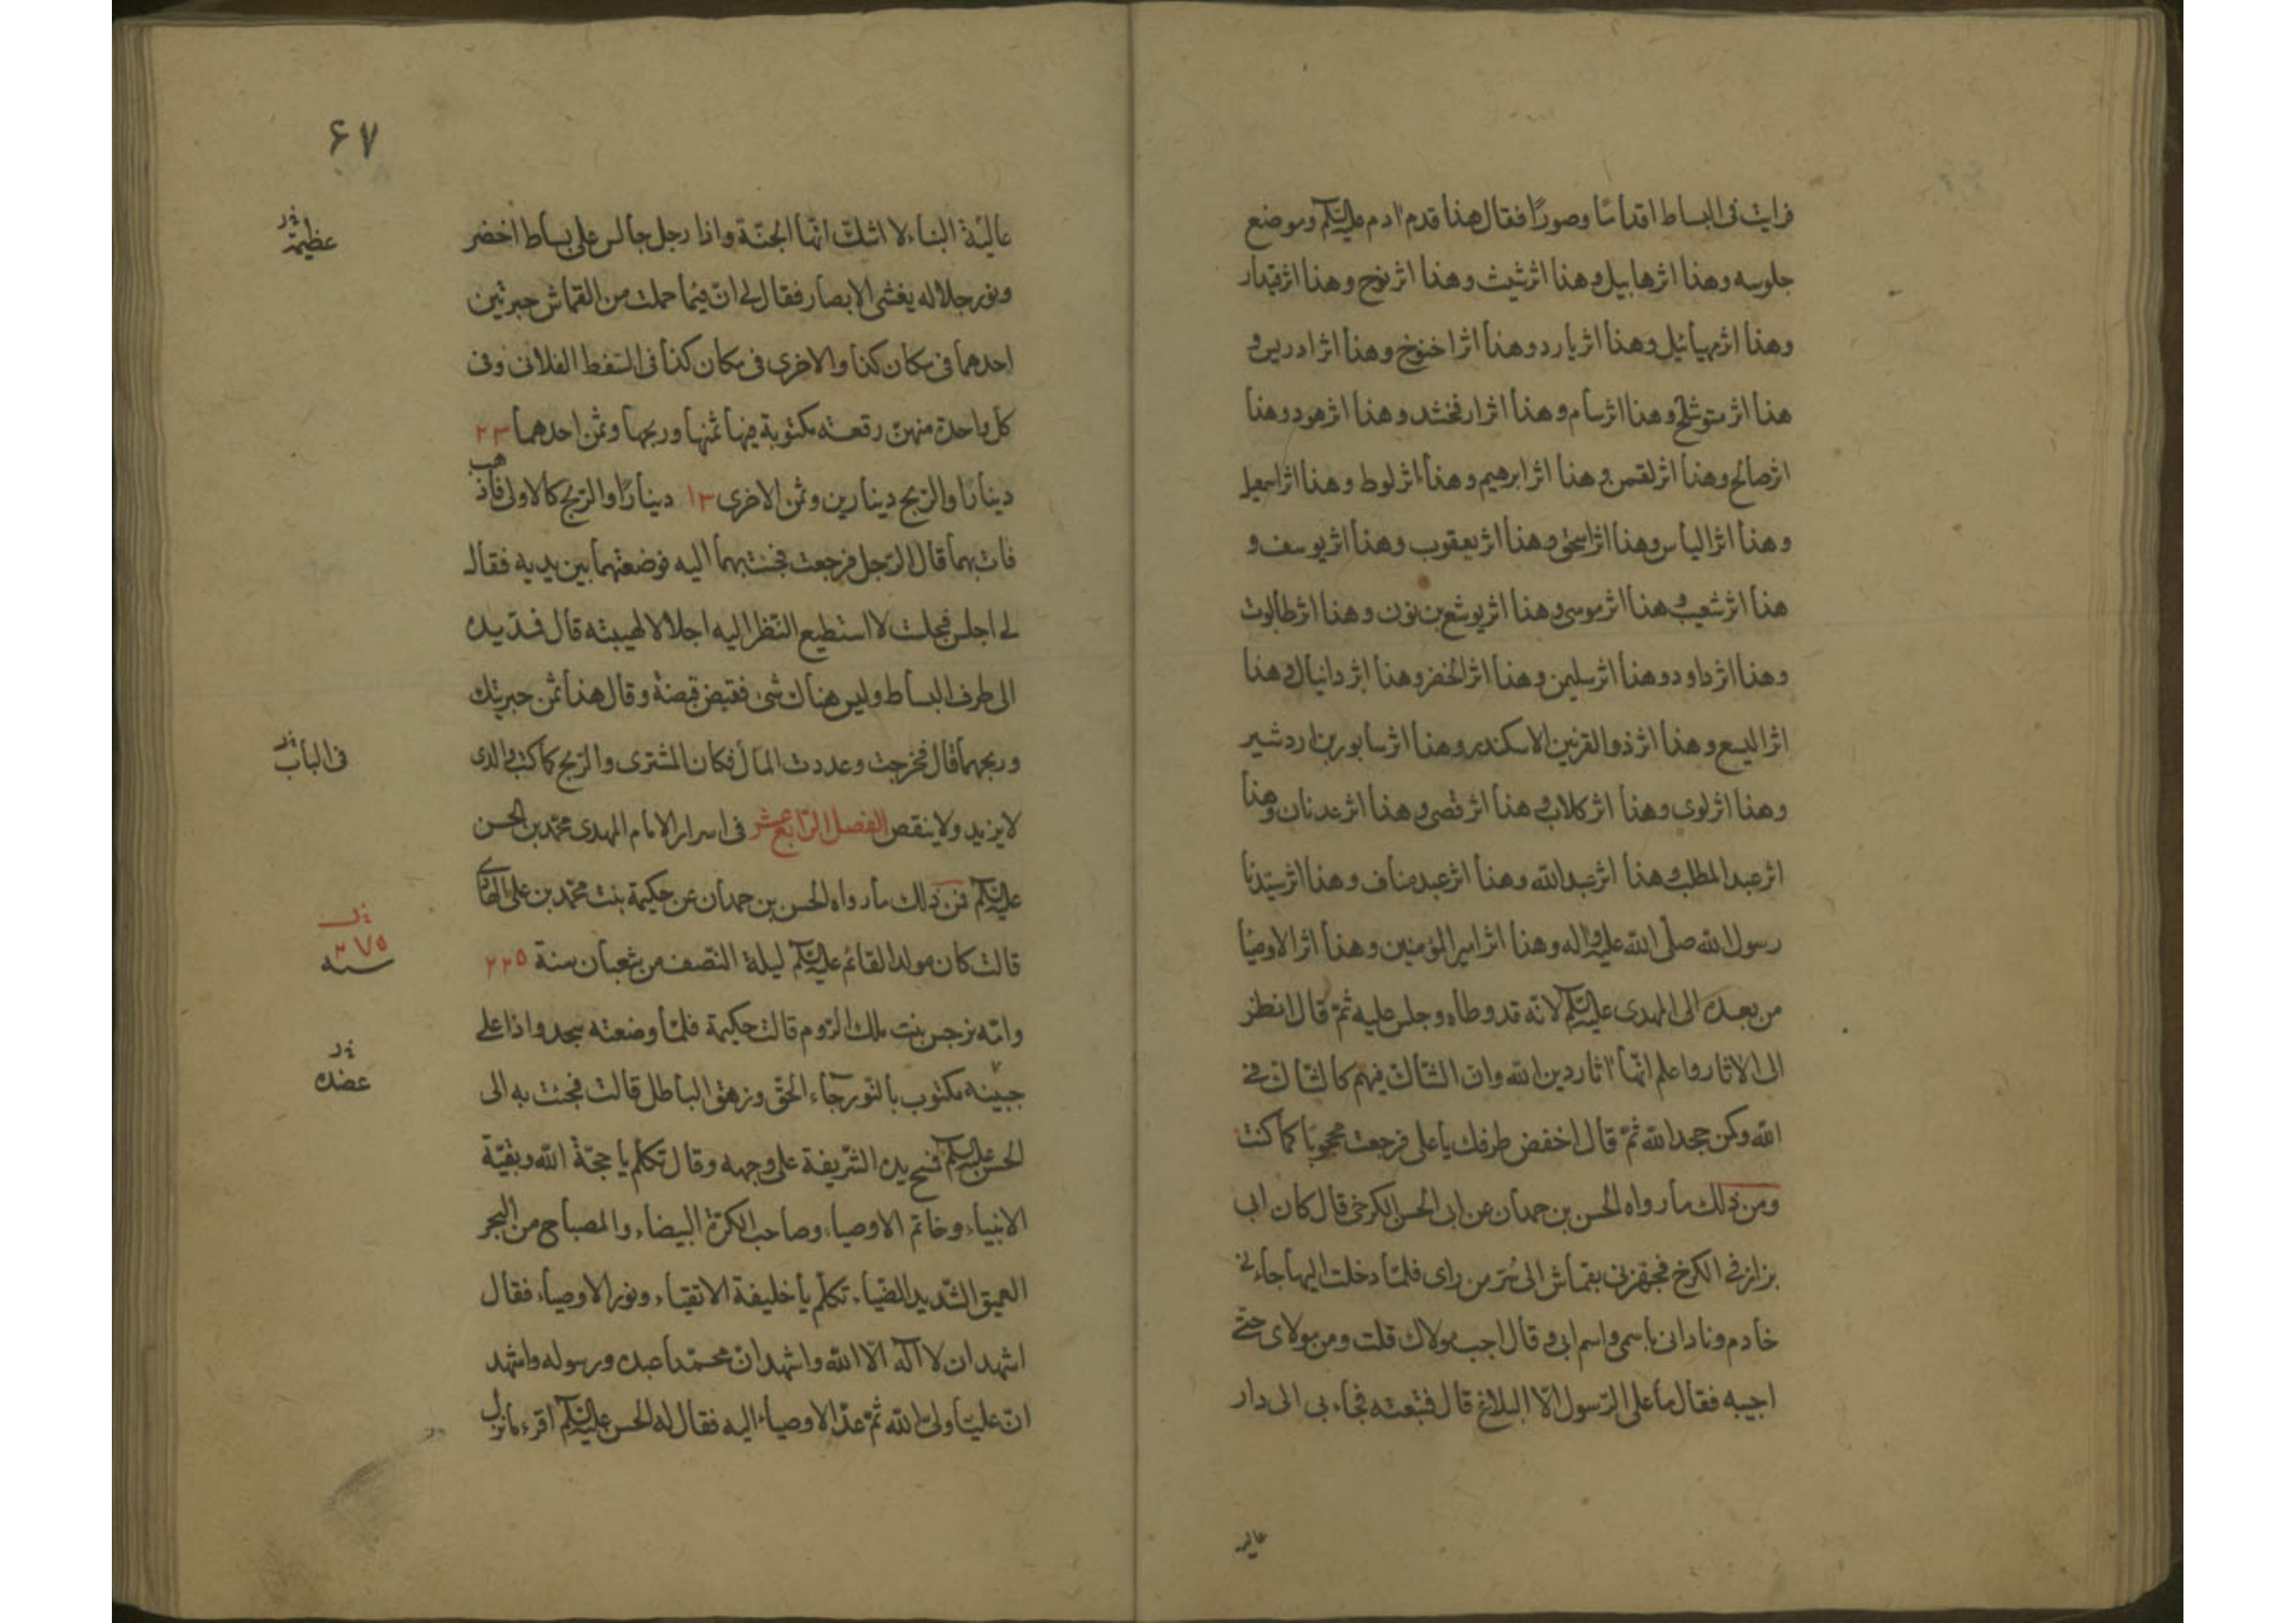 فرایت فی البساط اقداما وصورا فقال هذا قدم ادم علیه السلم وموضع
جلوسه وهذا اثر هابیل وهذا اثر شیث وهذا اثر نوح وهذا اثر قیدار
وهذا اثر مهیائیل وهذا اثر یارد وهذا اثر اخنوخ وهذا اثر ادریس و
هذا اثر متوشلح وهذا اثر سام وهذا اثر ارفخشد وهذا اثر هود وهذا
اثر صالح وهذا اثر لقمن وهذا اثر ابرهیم وهذا اثر لوط وهذا اثر اسمعیل
وهذا اثر الیاس وهذا اثر اسحق وهذا اثر یعقوب وهذا اثر یوسف و
هذا اثر شعیب وهذا اثر موسی وهذا اثر یوشع بن نون وهذا اثر طالوت
وهذا اثر داود وهذا اثر سلیمن وهذا اثر الخضر وهذا اثر دانیال وهذا
اثر الیسع وهذا اثر ذو القرنین الاسکندر وهذا اثر سابور بن اردشیر
وهذا اثر لوی وهذا اثر کلاب وهذا اثر قصی وهذا اثر عدنان وهذا
اثر عبد المطلب وهذا اثر عبد الله وهذا اثر عبد مناف وهذا اثر سیدنا
رسول الله صلی الله علیه واله وهذا اثر امیر المؤمنین وهذا اثر الاوصیا
من بعده الی المهدی علیه السلم لانه قد وطاه وجلس علیه ثم قال انظر
الی الاثار واعلم انها اثار دین الله وان الشاك فیهم کالشاك فی
الله وکن جحد الله ثم قال اخفض طرفك یا علی فرجعت محجوبا کما کنت
ومن ذلك ما رواه الحسن بن حمدان عن ابی الحسن الکرخی قال کان ابی
بزاز فی الکرخ فجهزنی بقماش الی سر من رای فلما دخلت الیها جاءنی
خادم ونادانی باسمی واسم ابی وقال اجب مولاك قلت ومن مولای حتی
اجیبه فقال ما علی الرسول الا البلاغ قال فتبعته فجاء بی الی دار
عالیه
۶۷
عالیة البناء لا اشك انها الجنة واذا رجل جالس علی بساط اخضر
عظیمة
ونور جلاله یغشی الابصار فقال لی ان فیما حملت من القماش حبرتین
احدهما فی مکان کذا والاخری فی مکان کذا فی السفط الفلانی وفی
کل واحدة منهن رقعة مکتوبة فیها ثمنها وربحها وثمن احدهما ۲۳
دینارا والربح دینارین وثمن الاخری ۱۳ دینارا والربح کالاولی فاذهب
فات بهما قال الرجل فرجعت فجئت بهما الیه فوضعتهما بین یدیه فقال
لی اجلس فجلست لا استطیع النظر الیه اجلالا لهیبته قال فمد یده
الی طرف البساط ولیس هناك شی فقبض قبضة وقال هذا ثمن حبرتیك
وربحهما قال فخرجت وعددت المال فکان المشتری والربح کما کتب والدی
فی الباب
لا یزید ولا ینقص الفصل الرابع عشر فی اسرار الامام المهدی محمد بن الحسن
علیه السلم فمن ذلك ما رواه الحسن بن حمدان عن حکیمة بنت محمد بن علی الجواد
قالت کان مولد القائم علیه السلم لیلة النصف من شعبان سنة ۲۲۵
۲۷۵
سنه
وامه نرجس بنت ملك الروم قالت حکیمة فلما وضعته سجد واذا علی
جبینه مکتوب بالنور جاء الحق وزهق الباطل قالت فجئت به الی
عضده
الحسن علیه السلم فمسح یده الشریفة علی وجهه وقال تکلم یا حجة الله وبقیة
الانبیاء وخاتم الاوصیاء وصاحب الکرة البیضاء والمصباح من البحر
العمیق الشدید الضیاء تکلم یا خلیفة الاتقیاء ونور الاوصیاء فقال
اشهد ان لا اله الا الله واشهد ان محمدا عبده ورسوله واشهد
ان علیا ولی الله ثم عد الاوصیاء الیه فقال له الحسن علیه السلم اقرء ما نزل